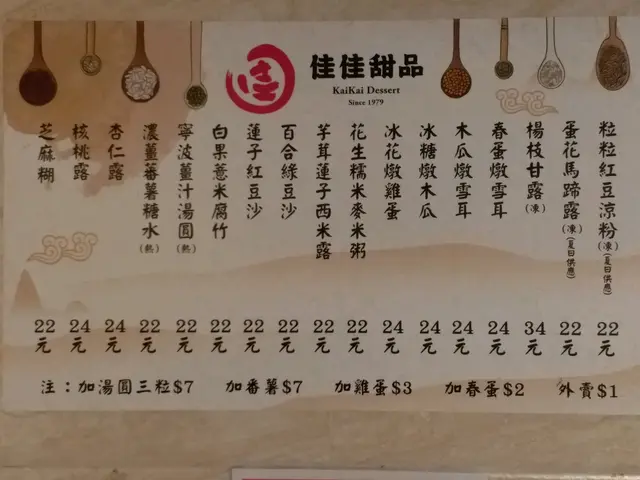 佳佳甜品
KaiKai Dessert
Since 1979
粒粒紅豆涼粉(凍)(夏日供應) 22元
蛋花馬蹄露(凍)(夏日供應) 22元
楊枝甘露(凍) 34元
春蛋燉雪耳 24元
木瓜燉雪耳 24元
冰糖燉木瓜 24元
冰花燉雞蛋 24元
花生糯米麥米粥 22元
芋茸蓮子西米露 22元
百合綠豆沙 22元
蓮子紅豆沙 22元
白果薏米腐竹 22元
寧波薑汁湯圓(熱) 22元
濃薑番薯糖水(熱) 22元
杏仁露 24元
核桃露 24元
芝麻糊 22元
注：加湯圓三粒$7 加番薯$7 加雞蛋$3 加春蛋$2 外賣$1